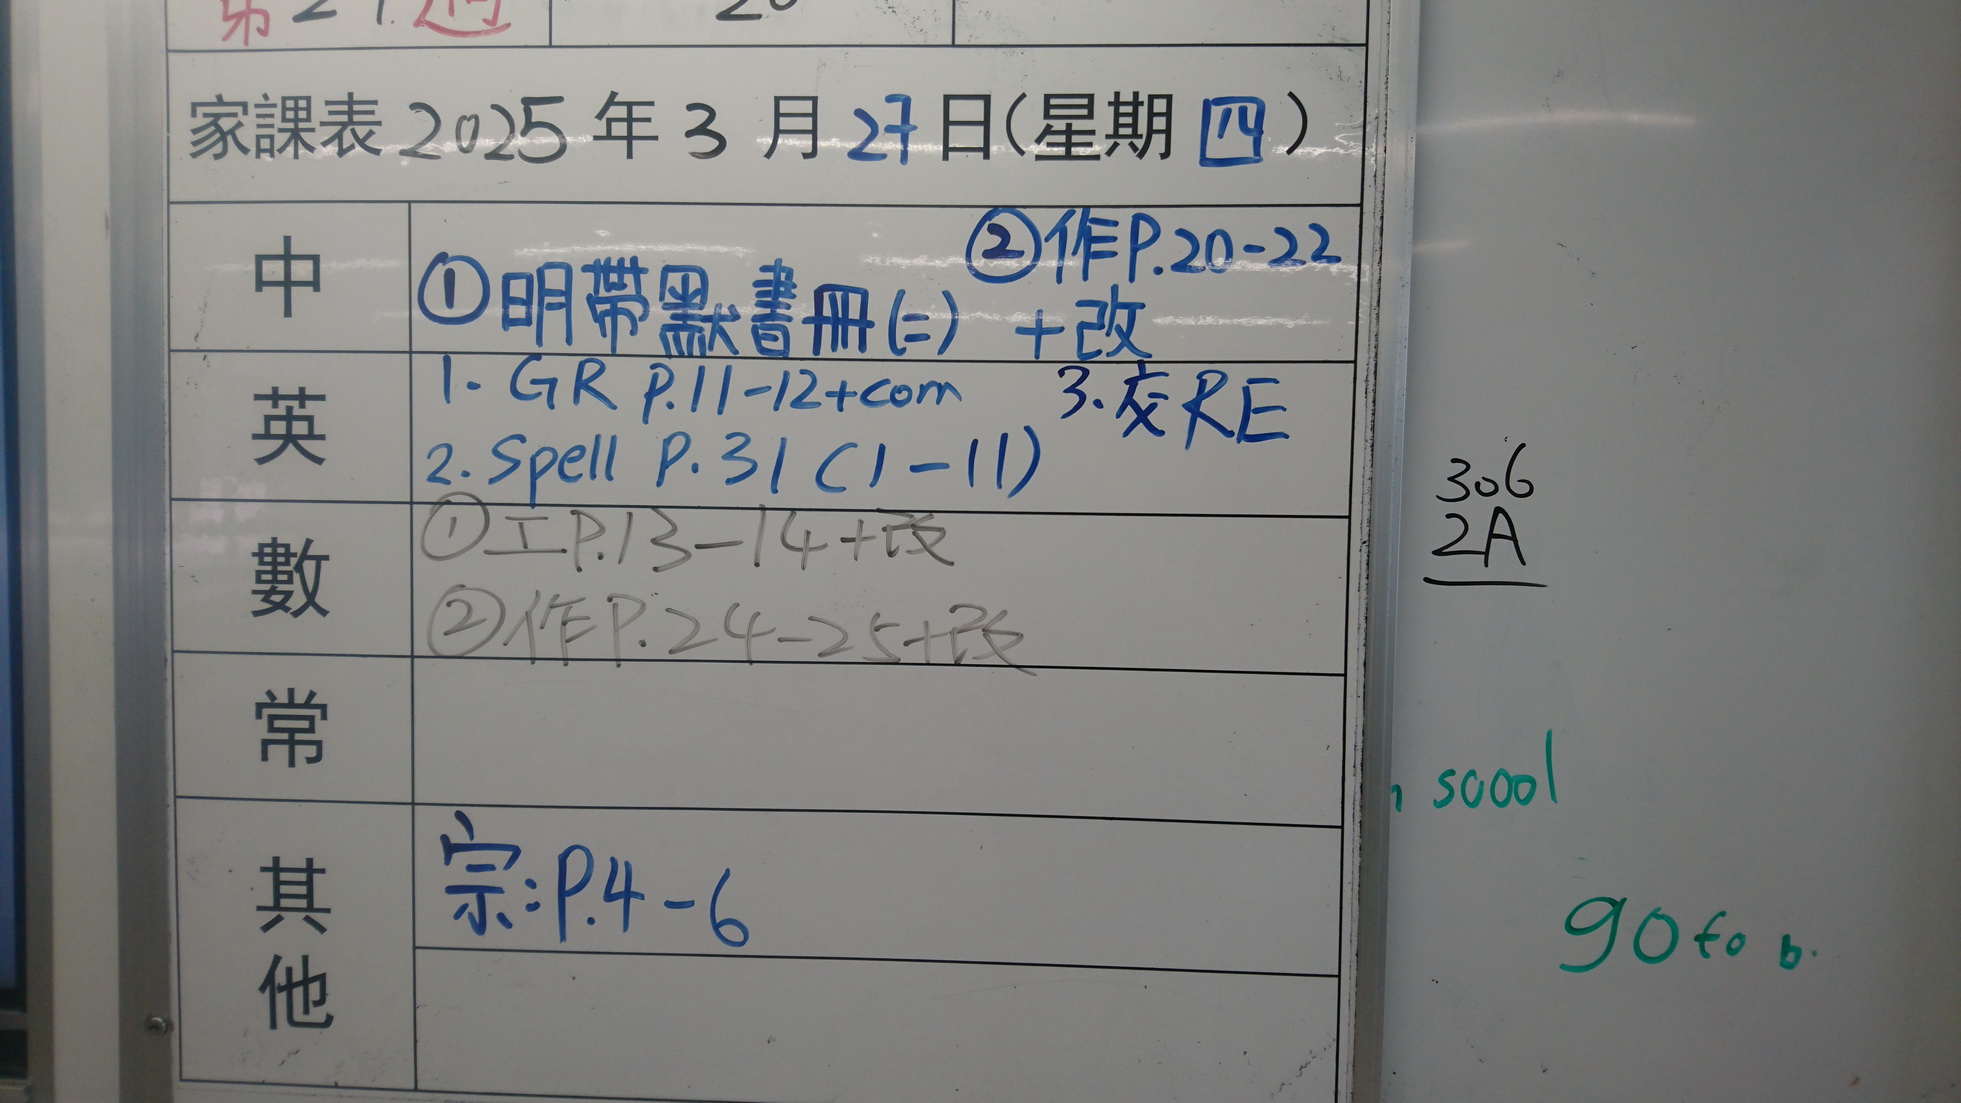 家課表 2025 年 3 月 27 日(星期 四)
中
②作P.20-22
①明帶默書冊(二) +改
英
1. GR P.11-12+com 3.交RE
2. Spell P.31 (1-11)
數
①工P.13-14+改
②作P.24-25+改
常
其他
宗:P.4-6
306
2A
soool
go to b.